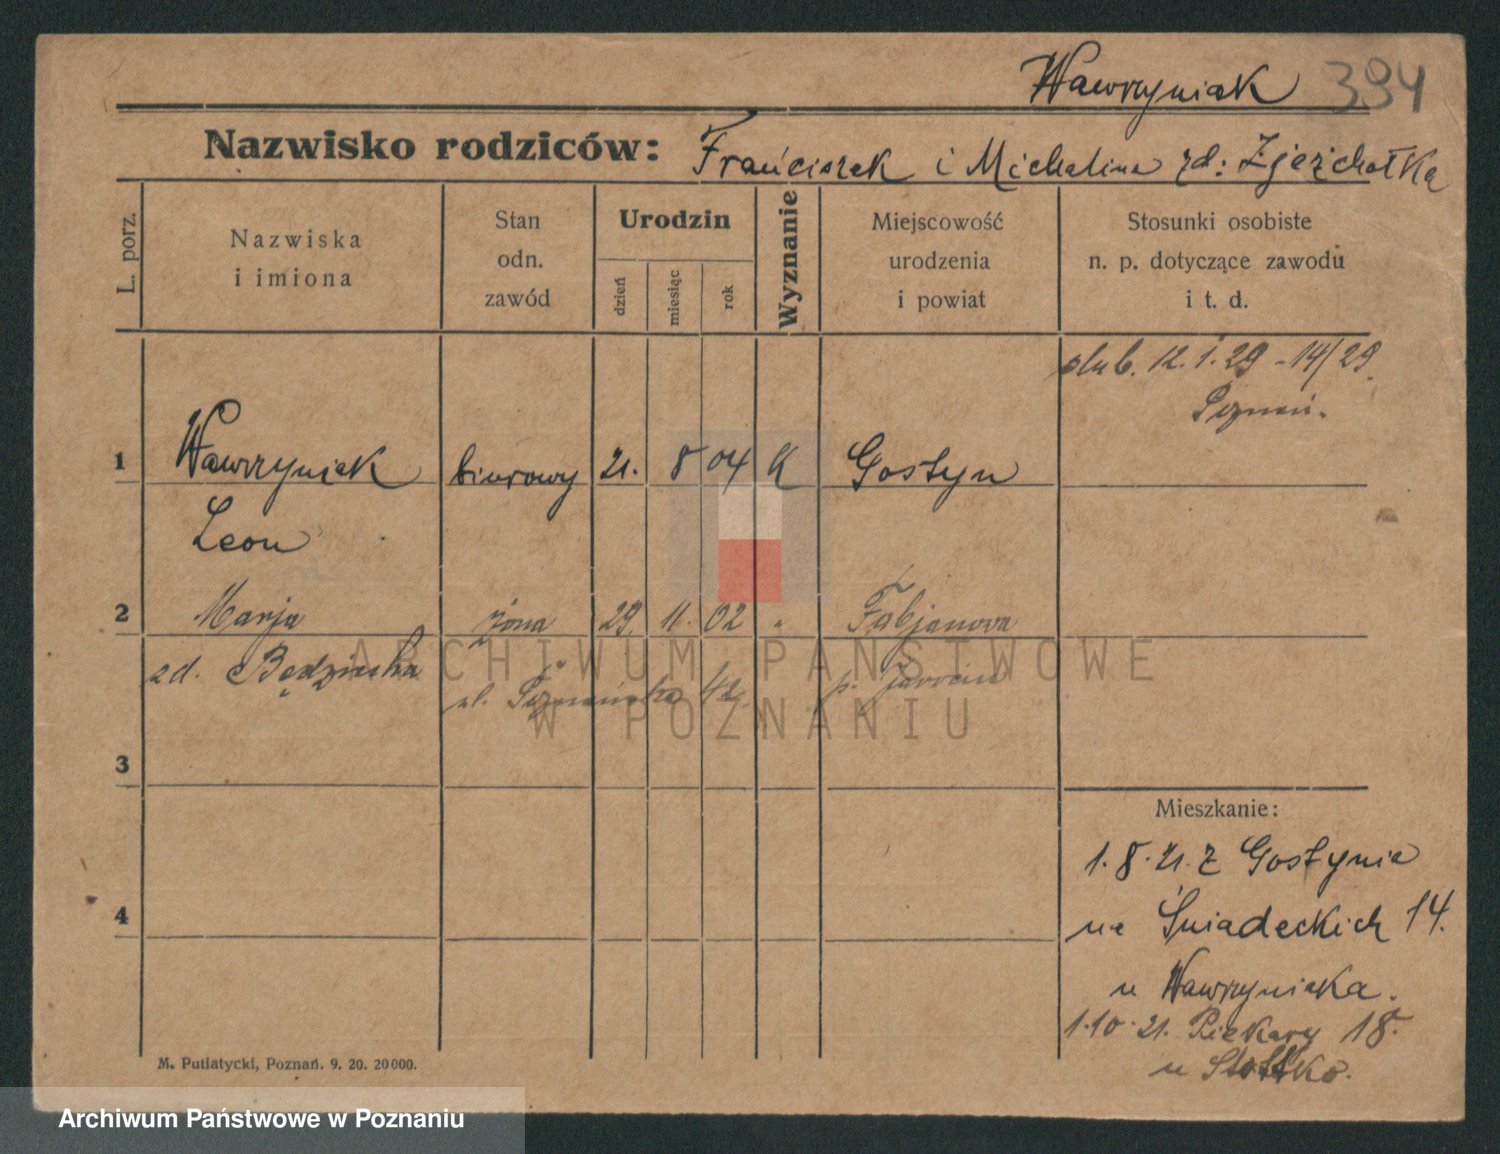 Wawrzyniak 394
Nazwisko rodziców: Franciszek i Michalina zd: Zjeżchałka
L. porz.
Nazwiska
i imiona
Stan
odn.
zawód
Urodzin
dzień
miesiąc
rok
Wyznanie
Miejscowość
urodzenia
i powiat
Stosunki osobiste
n. p. dotyczące zawodu
i t. d.
ślub. 12.1.29 - 14/29.
Poznań.
1 Wawrzyniak biurowy 21. 8 04 K Gostyn
Leon
2 Marja żona 29. 11. 02 " Fabjanova
zd. Będzińska ul. Poznańska 42. p. Jarocin
3
4
Mieszkanie:
1.8.21. z Gostynia
na Śniadeckich 14.
u Wawrzyniaka.
1.10.21. Piekary 18.
u
M. Putiatycki, Poznań. 9. 20. 20000.
ARCHIWUM PAŃSTWOWE
W POZNANIU
Archiwum Państwowe w Poznaniu